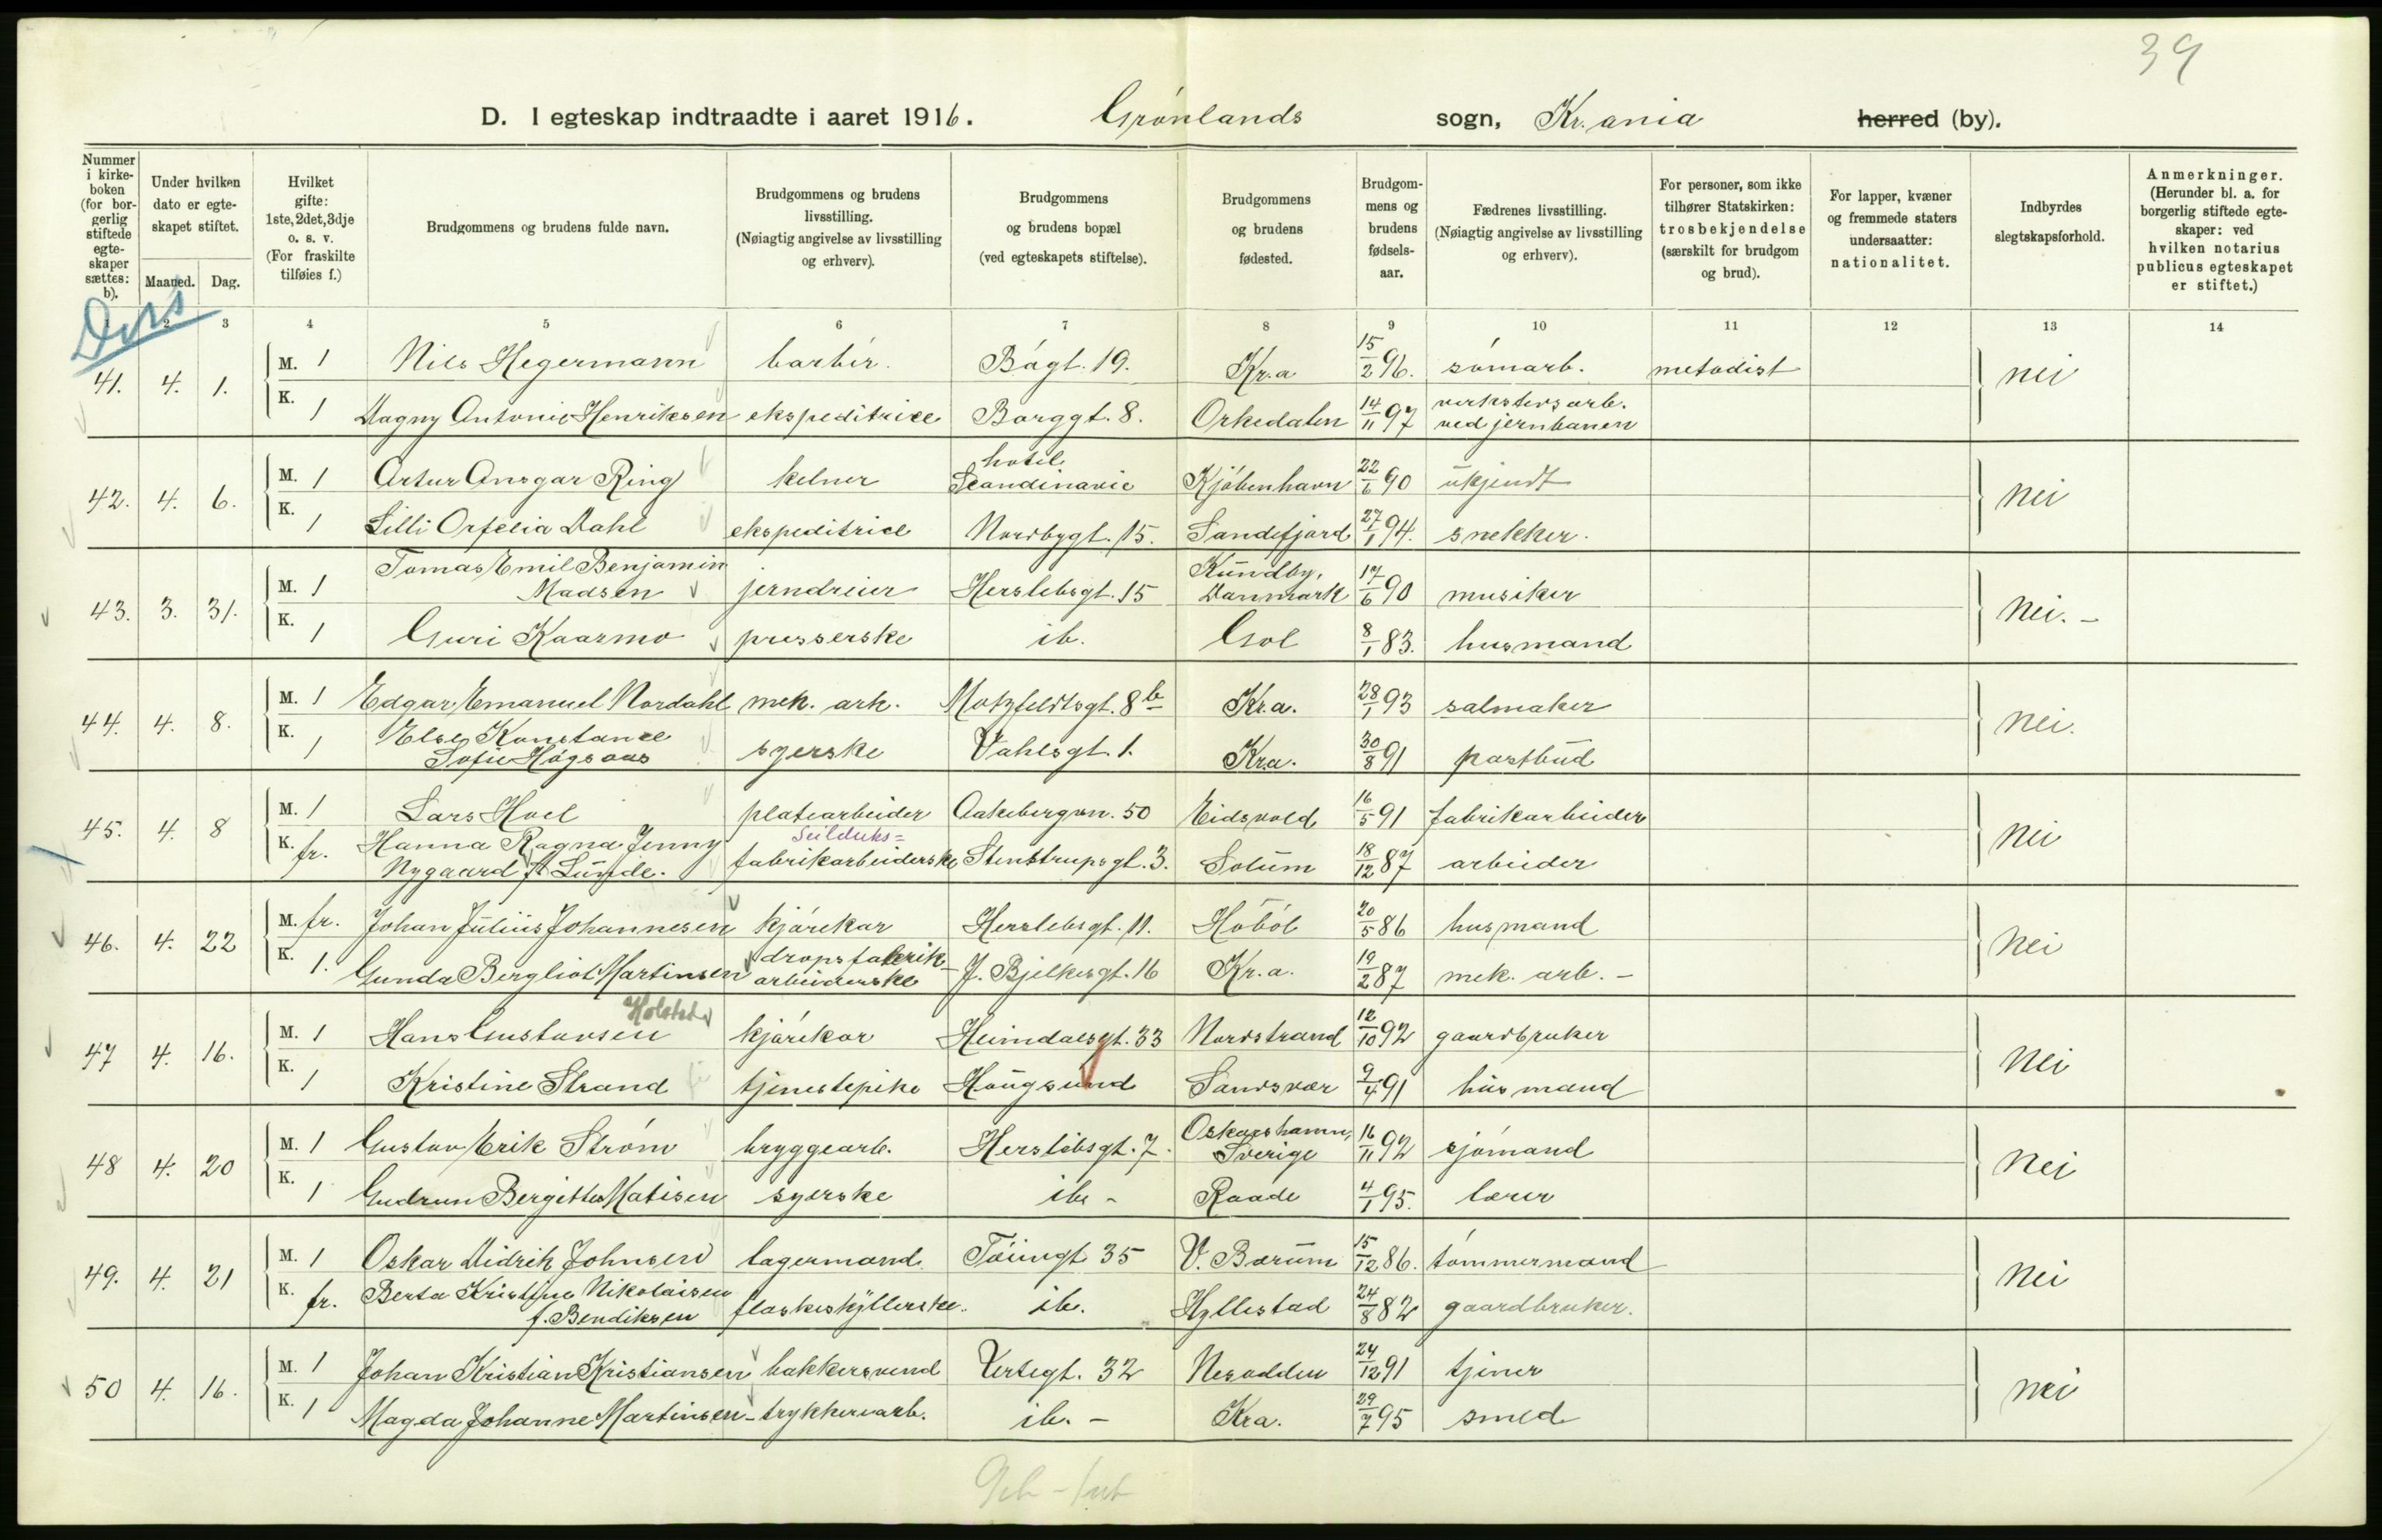 39
D. I egteskap indtraadte i aaret 1916. Grønlands sogn, Kr.ania herred (by).
Nummer i kirkeboken (for borgerlig stiftede egteskaper sættes: b).
Under hvilken dato er egteskapet stiftet.
Maaned. Dag.
Hvilket gifte: 1ste, 2det, 3dje o. s. v. (For fraskilte tilføies f.)
Brudgommens og brudens fulde navn.
Brudgommens og brudens livsstilling. (Nøiagtig angivelse av livsstilling og erhverv).
Brudgommens og brudens bopæl (ved egteskapets stiftelse).
Brudgommens og brudens fødested.
Brudgommens og brudens fødselsaar.
Fædrenes livsstilling. (Nøiagtig angivelse av livsstilling og erhverv).
For personer, som ikke tilhører Statskirken: trosbekjendelse (særskilt for brudgom og brud).
For lapper, kvæner og fremmede staters undersaatter: nationalitet.
Indbyrdes slegtskapsforhold.
Anmerkninger. (Herunder bl. a. for borgerlig stiftede egteskaper: ved hvilken notarius publicus egteskapet er stiftet.)
1 2 3 4 5 6 7 8 9 10 11 12 13 14
41. 4. 1. M. 1 Nils Hegermann barbér. Bågt. 19. Kr.a 15/2 96. sømarb. metodist nei
K. 1 Dagny Antonie Henriksen ekspeditrice Borggt. 8. Orkedalen 14/11 97 verkstedsarb. ved jernbanen
42. 4. 6. M. 1 Artur Ansgar Ring kelner hotel Scandinavie Kjøbenhavn 22/6 90 ukjendt nei
K. 1 Lilli Orfelia Dahl ekspeditrice Nordbygt. 15. Sandefjord 27/1 94. snekker.
43. 3. 31. M. 1 Tomas Emil Benjamin Madsen jerndreier Herslebsgt. 15 Kundby, Danmark 17/6 90 musiker nei. -
K. 1 Guri Kaarmo presserske ib. Gol 8/1 83. husmand
44. 4. 8. M. 1 Edgar Emanuel Nordahl mek. arb. Motzfeldtsgt. 8b Kr.a. 28/1 93 salmaker nei.
K. 1 Else Konstance Sofie Høgsaas syerske Vahlsgt. 1. Kr.a. 30/8 91 postbud
45. 4. 8 M. 1 Lars Hoel platearbeider Aakebergvn. 50 Eidsvold 16/5 91 fabrikarbeider nei
K. fr. Hanna Ragna Jenny Nygaard f. Lunde. Seilduks= fabrikarbeiderske Stenstrupsgt. 3. Solum 18/12 87 arbeider
46. 4. 22 M. fr. Johan Julius Johannesen kjørekar Herslebsgt. 11. Høbøl 20/5 86 husmand nei
K. 1. Gunda Bergliot Martinsen dropsfabrik- arbeiderske J. Bjelkesgt. 16 Kr.a. 19/2 87 mek. arb. -
47 4. 16. M. 1 Hans Gustavsen Holstad kjørekar Heimdalsgt. 33 Nordstrand 12/10 92 gaardbruker nei
K. 1 Kristine Strand tjenestepike Hougsund Sandsvær 9/4 91 husmand
48 4. 20 M. 1 Gustav Erik Strøm bryggearb. Herslebsgt. 7. Oskarshamn, Sverige 16/11 92 sjømand nei
K. 1 Gudrun Bergitte Matisen syerske ib. - Raade 4/1 95. lærer
49. 4. 21 M. 1 Oskar Didrik Johnsen lagermand. Tøiengt 35 V. Bærum 15/12 86. tømmermand nei
K. fr. Berta Kristine Nikolaisen f. Bendiksen flaskeskyllerske. ib. Hyllestad 24/8 82 gaardbruker.
50 4. 16. M. 1 Johan Kristian Kristiansen bakkersvend Urtegt. 32 Nesodden 24/12 91 tjener nei
K. 1 Magda Johanne Martinsen - trykkeriarb. ib. - Kr.a. 29/7 95 smed